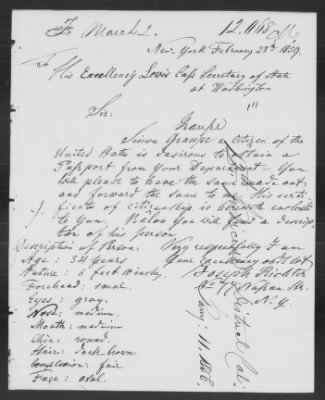 Fr March 2.
12.1168
New York February 28th 1859.
To
His Excellency Lewis Cass Secretary of State
at Washington
Sir:
Graupe
Simon Graupe a Citizen of the
United States is desirous to obtain a
Passport from Your Department - You
will please to have the same made out,
and forward the same to me. His certi-
ficate of citizenship is herewith enclosed
to You. Below You will find a descrip-
tion of his person.
Description of Person. Very respectfully I am
Age: 34 Years Your Excellency obdt Svt
Stature: 5 feet inch. Joseph Richter
Forehead: 77 Nassau Str.
Eyes: gray. N.Y.
Nose: medium.
Mouth: medium
Chin: round.
Hair: dark brown.
Complexion: fair
Face: oval.
District Cal: